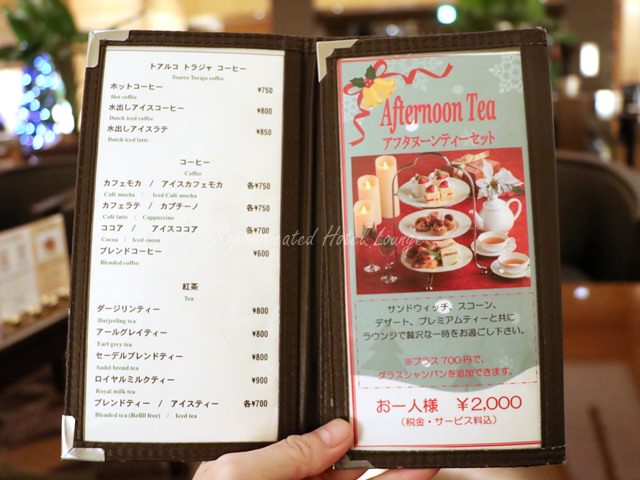 トアルコ トラジャ コーヒー
Toarco Toraja coffee
ホットコーヒー ¥750
Hot coffee
水出しアイスコーヒー ¥800
Dutch iced coffee
水出しアイスラテ ¥850
Dutch iced latte
コーヒー
Coffee
カフェモカ / アイスカフェモカ 各¥750
Café mocha / Iced Café mocha
カフェラテ / カプチーノ 各¥750
Café latte / Cappuccino
ココア / アイスココア 各¥700
Cocoa / Iced cocoa
ブレンドコーヒー ¥600
Blended coffee
紅茶
Tea
ダージリンティー ¥800
Darjeeling tea
アールグレイティー ¥800
Earl grey tea
セーデルブレンドティー ¥800
Sadel brend tea
ロイヤルミルクティー ¥900
Royal milk tea
ブレンドティー / アイスティー 各¥700
Blended tea (Refill free) / Iced tea
Afternoon Tea
アフタヌーンティーセット
サンドウィッチ、スコーン、
デザート、プレミアムティーと共に
ラウンジで贅沢な一時をお過ごし下さい。
※プラス700円で、
グラスシャンパンを追加できます。
お一人様 ¥2,000
(税金・サービス料込)
Sophisticated Hotel Lounge